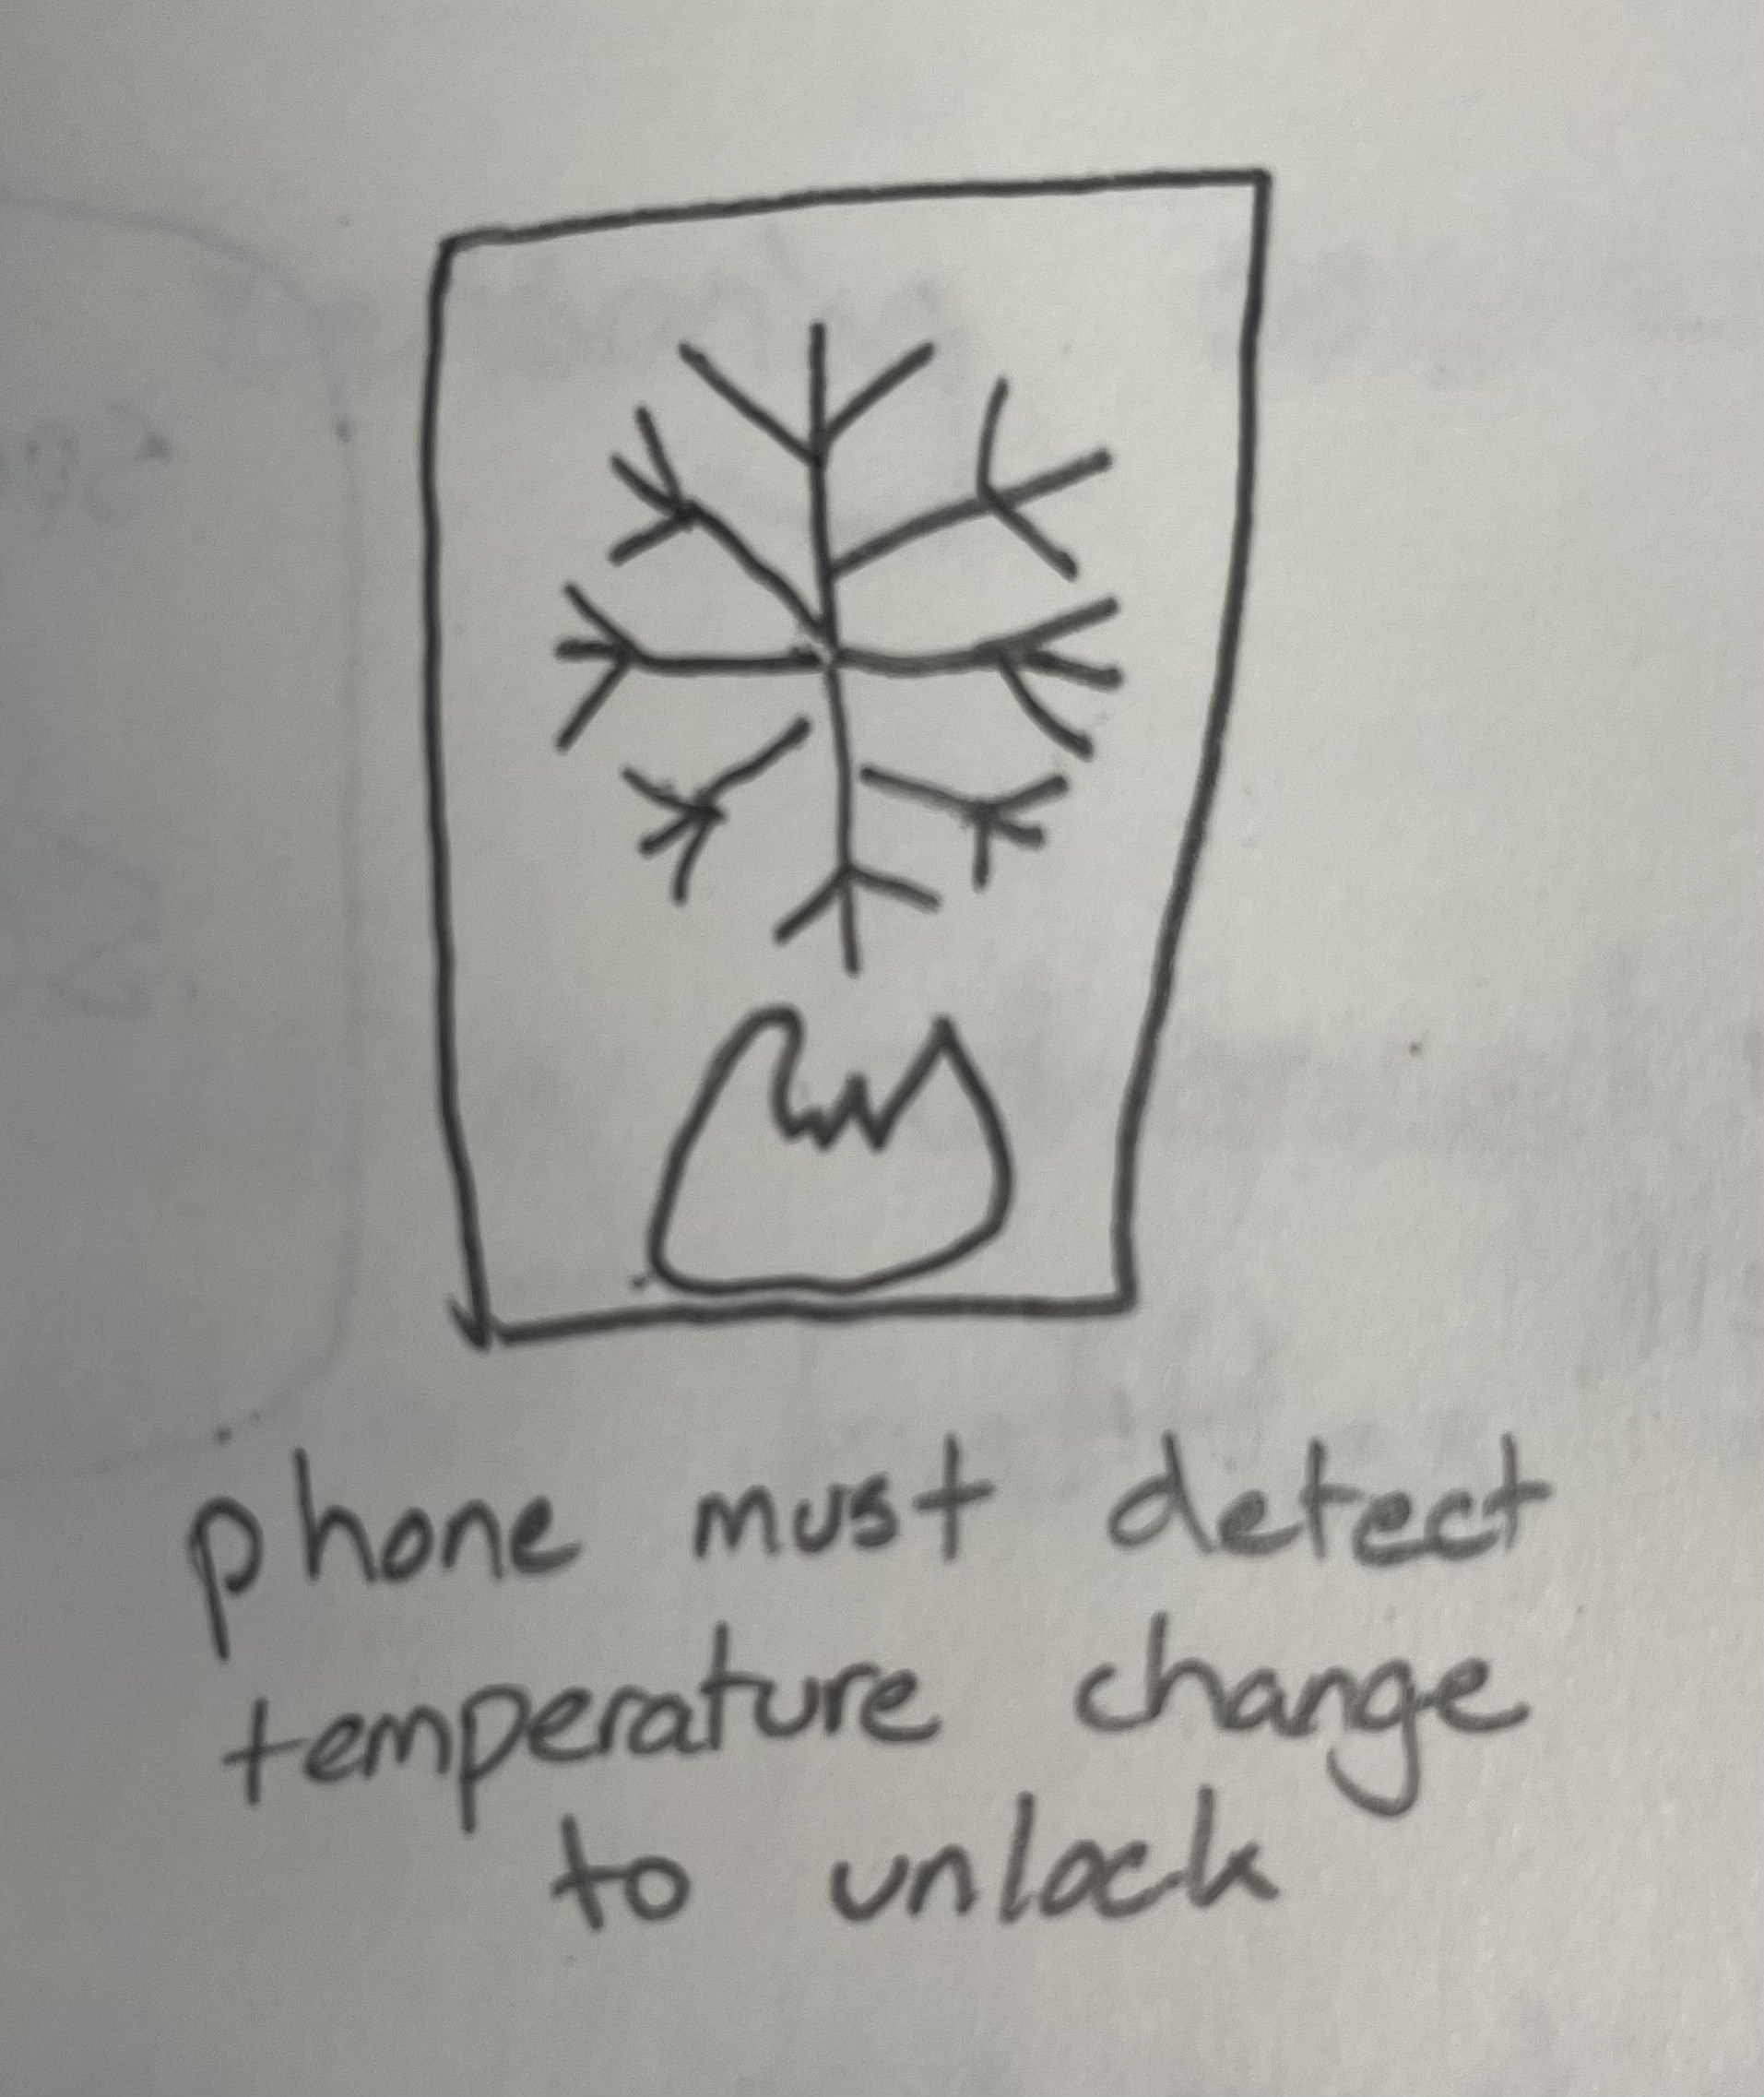 phone must detect
temperature change
to unlock